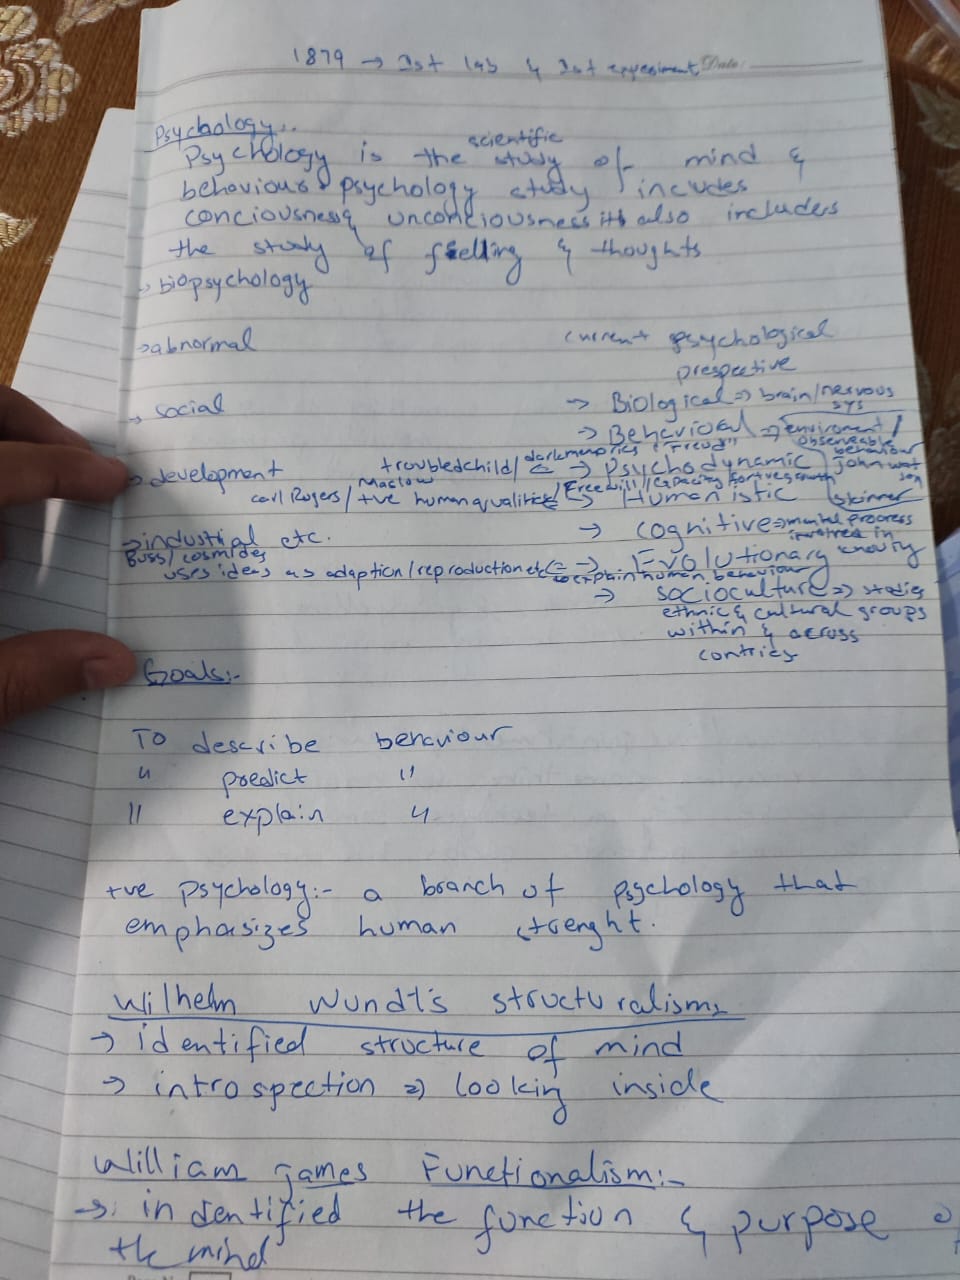 1879 → 1st lab & 1st experiment Date:
Psychology:-
Psychology is the scientific study of mind &
behaviour psychology study includes
conciousness & unconciousness it also includers
the study of feelling & thoughts
→ biopsychology
→ abnormal
→ social
→ development
→ industrial etc.
current psychological
prespective
→ Biological ⇒ brain/nervous
sys
→ Behavioral ⇒ enviroment/
observeable
behaviour
john wat
son
skinner
troubledchild/darkmemories "Freud" ⇐ → Psychodynamic
carl Rogers/Maslow/+ve humanqualities/Freewill/capacity for +ve growth ⇐ → Humanistic
→ cognitive ⇒ mental process
involved in
knowing
Buss/cosmides
uses ideas as adaption/reproduction etc to explain human behaviour ⇐ → Evolutionary
→ socioculture ⇒ studies
ethnic & cultural groups
within & across
contries
Goals:-
To describe behaviour
" predict "
" explain "
+ve psychology:- a branch of psychology that
emphasizes human strenght.
Wilhelm Wundt's structuralism
→ identified structure of mind
→ introspection ⇒ looking inside
William games Functionalism:-
→ indentified the function & purpose of
the mind